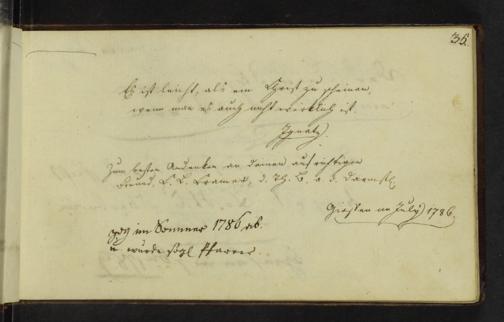 35.
Es ist leicht, als ein Christ zu scheinen,
wenn man es auch nicht wirklich ist.
Ignatz.
Zum besten Andenken an deinen aufrichtigen
Freund, Cramer, d. Th. B. a. d. Darmst.
Giessen im July 1786.
im Sommer 1786 ab.
u. wurde Pfarrer.